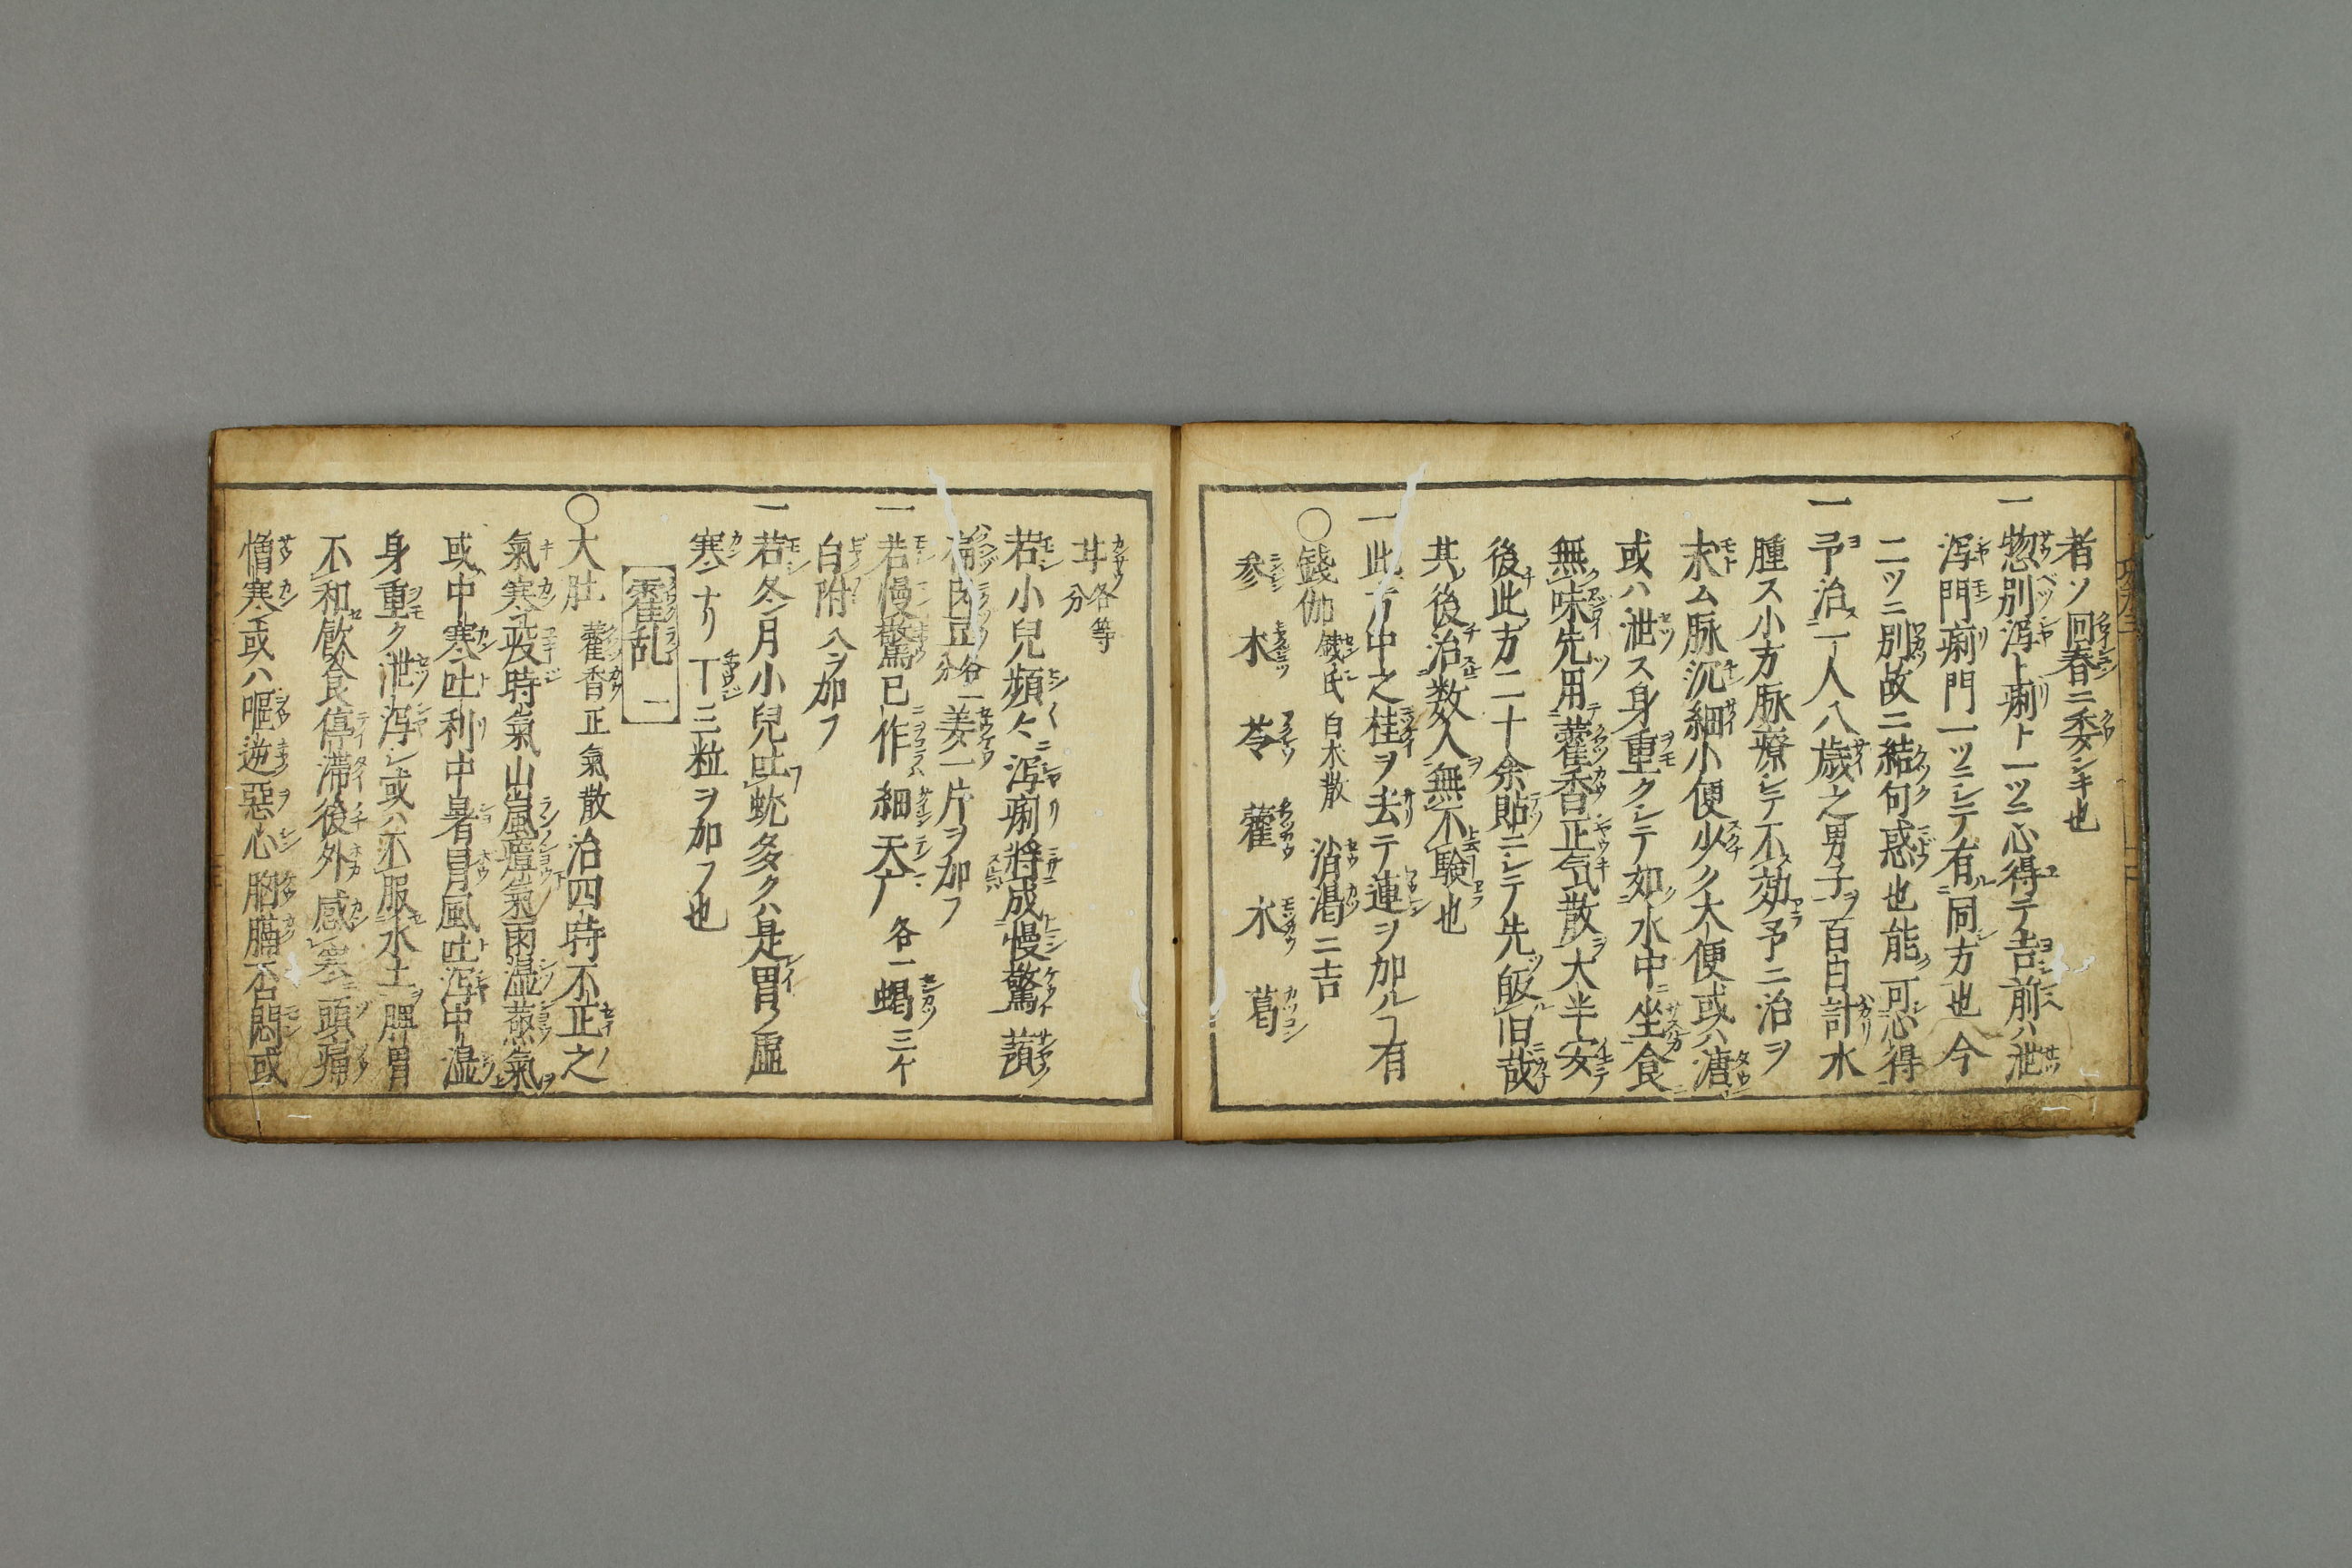 者ソ回春ニ委シキ也
一惣別瀉ト痢ト一ツニ心得テ吉前ハ泄
瀉門痢門一ツニシテ有同方也今
二ツニ別故ニ結句惑也能可心得
一予治一人八歳之男子百日計水
腫ス小方脉療シテ不効予ニ治ヲ
求ム脉沉細小便少ク大便或ハ溏
或ハ泄ス身重クシテ如水中坐食
無味先用藿香正気散大半安
後此方二十余貼ニシテ先皈旧哉
其後治数人無不驗也
一此方中之桂ヲ去テ連ヲ加ルコ有
〇錢伽 錢氏白朮散 消渇ニ吉
参 朮 苓 藿 木 葛
甘各等分
若小兒頻々瀉痢將成慢驚
肉豆各一分姜一片ヲ加フ
一若慢驚已作細天各一蝎三ケ
白附八ヲ加フ
一若冬月小兒吐蚘多クハ是胃虛
寒ナリ丁三粒ヲ加フ也
霍乱 二
〇大肚 藿香正氣散 治四時不正之
氣寒疫時氣山嵐瘴氣雨湿蒸氣
或中寒吐利中暑冒風吐瀉中湿
身重ク泄瀉シ或ハ不服水土脾胃
不和飲食停滞後外感寒頭痛
憎寒或ハ嘔逆惡心胸膈否悶或